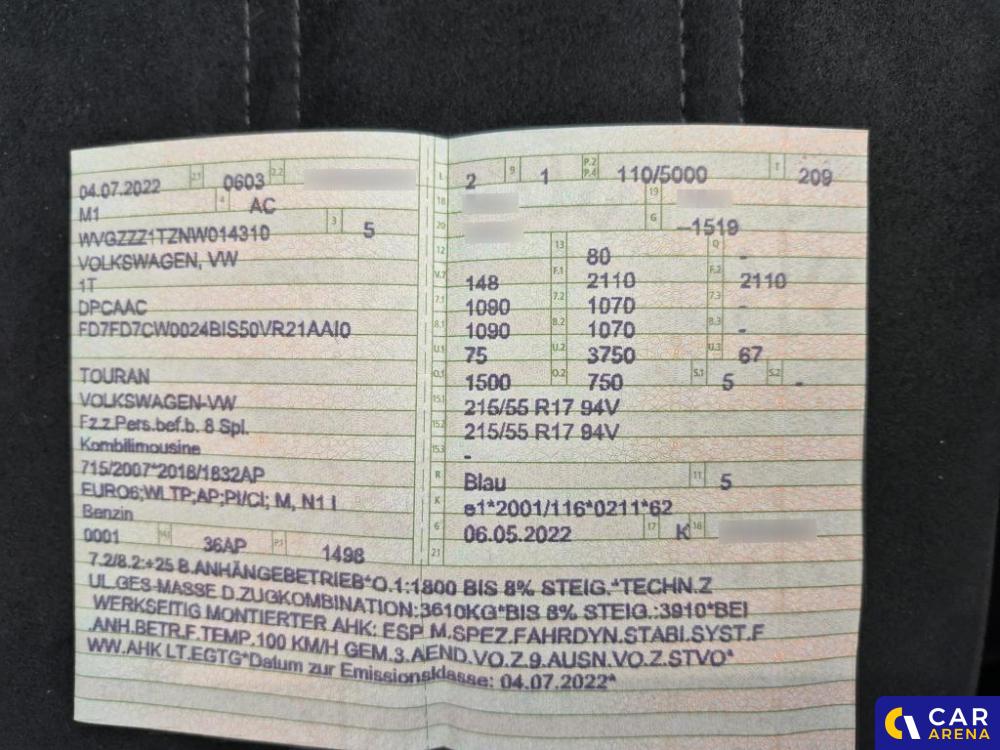 04.07.2022 2.1 0603 2.2
M1 4 AC
WVGZZZ1TZNW014310 3 5
VOLKSWAGEN, VW
1T
DPCAAC
FD7FD7CW0024BIS50VR21AAI0
TOURAN
VOLKSWAGEN-VW
Fz.z.Pers.bef.b. 8 Spl.
Kombilimousine
715/2007*2018/1832AP
EURO6;WLTP;AP;PI/CI; M, N1 I
Benzin
0001 14.1 36AP P.1 1498
L 2 9 1 P.2 P.4 110/5000 T 209
18 19
20 G –1519
12 13 80 Q -
V.7 148 F.1 2110 F.2 2110
7.1 1090 7.2 1070 7.3 -
8.1 1090 8.2 1070 8.3 -
U.1 75 U.2 3750 U.3 67
O.1 1500 O.2 750 S.1 5 S.2 -
15.1 215/55 R17 94V
15.2 215/55 R17 94V
15.3 -
R Blau 11 5
K e1*2001/116*0211*62
6 06.05.2022 17 K 16
21
7.2/8.2:+25 B.ANHÄNGEBETRIEB*O.1:1800 BIS 8% STEIG.*TECHN.Z
UL.GES-MASSE D.ZUGKOMBINATION:3610KG*BIS 8% STEIG.:3910*BEI
WERKSEITIG MONTIERTER AHK: ESP M.SPEZ.FAHRDYN.STABI.SYST.F
.ANH.BETR.F.TEMP.100 KM/H GEM.3.AEND.VO.Z.9.AUSN.VO.Z.STVO*
WW.AHK LT.EGTG*Datum zur Emissionsklasse: 04.07.2022*
CAR
ARENA